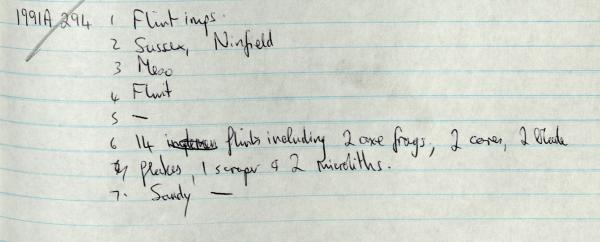 1991A 294 1 Flint imps.
2 Sussex, Ninfield
3 Meso
4 Flint
5 —
6 14 flints including 2 axe frags, 2 cores, 2 blade
flakes, 1 scraper & 2 microliths.
7. Sandy —